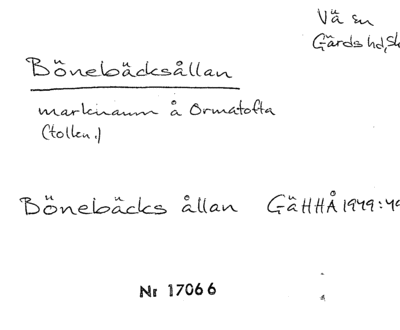 Vä sn
Gärds hd, Sk
Bönebäcksållan
marknamn å Ormatofta
(tollen.)
Bönebäcks ållan GäHHÅ 1949:49
Nr 17066